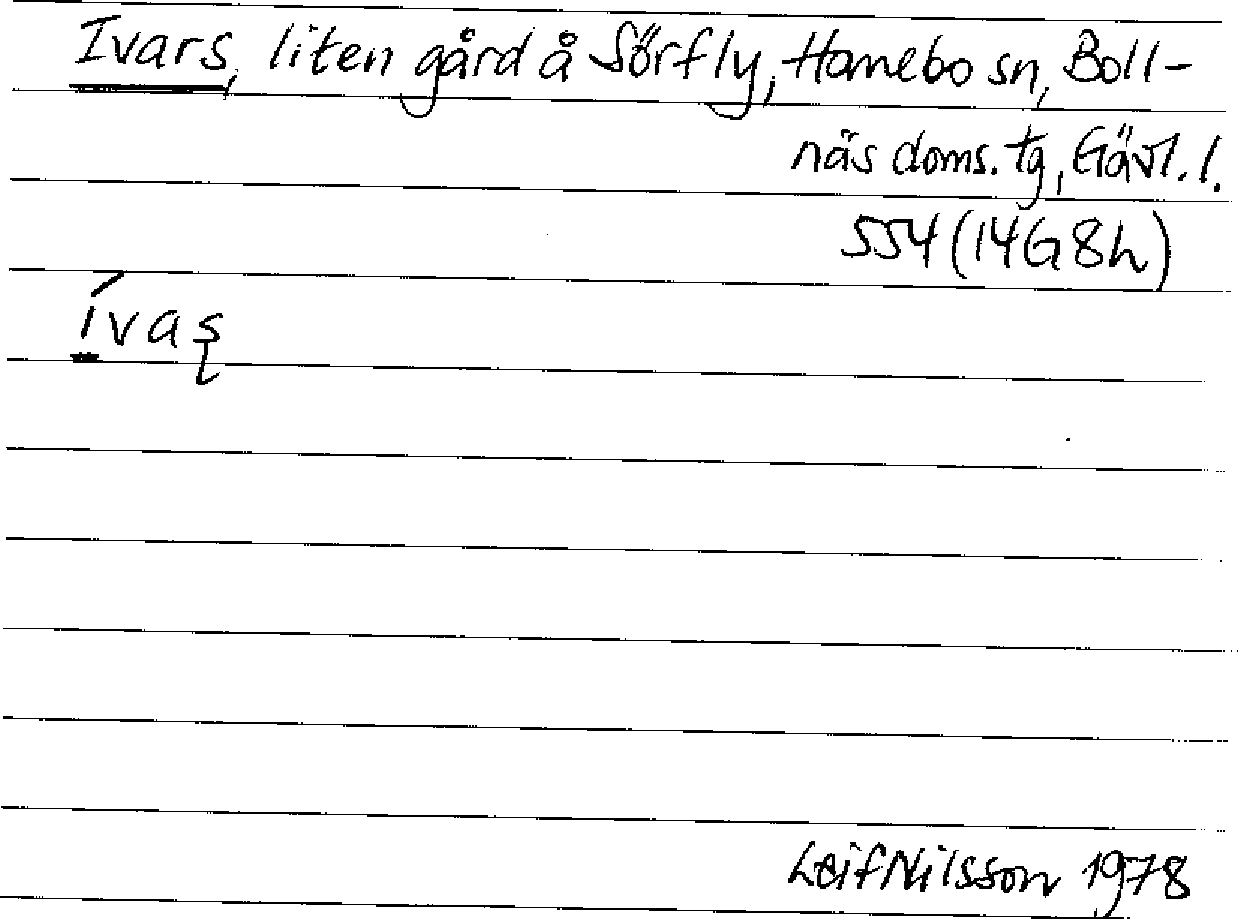 Ivars, liten gård å Sörfly, Hanebo sn, Boll-
näs doms. tg, Gävl. l.
554 (14G8h)
í̱vaş
Leif Nilsson 1978